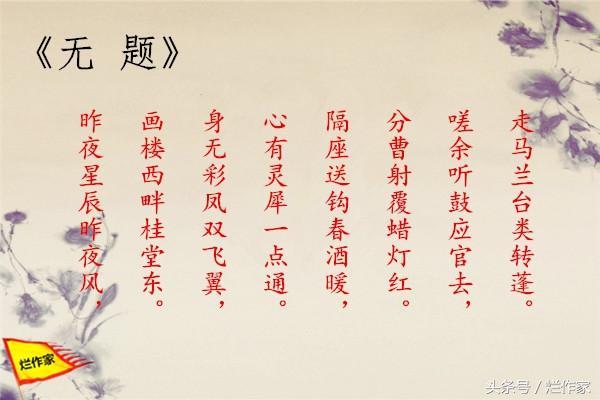 《无 题》
昨夜星辰昨夜风，
画楼西畔桂堂东。
身无彩凤双飞翼，
心有灵犀一点通。
隔座送钩春酒暖，
分曹射覆蜡灯红。
嗟余听鼓应官去，
走马兰台类转蓬。
烂作家
头条号 / 烂作家